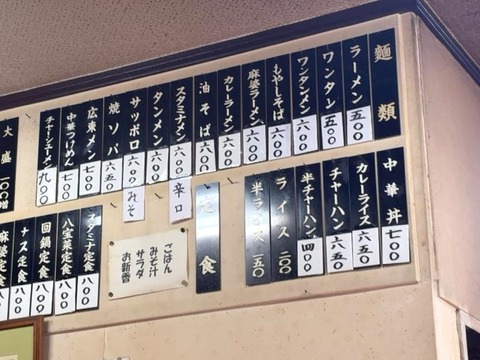 麺類
ラーメン 五〇〇
ワンタン 五〇〇
ワンタンメン 六〇〇
もやしそば 六〇〇
麻婆ラーメン 六〇〇
カレーラーメン 六〇〇
油そば 六〇〇
スタミナメン 六〇〇
辛口
タンメン 六〇〇
サッポロ 六〇〇
みそ
焼ソバ 六五〇
広東メン 七〇〇
中華つけめん 七〇〇
チャーシューメン 九〇〇
大盛 一〇〇増
中華丼 七〇〇
カレーライス 六五〇
チャーハン 六五〇
半チャーハン 四〇〇
ライス 二〇〇
半ライス 一五〇
定食
ごはん
みそ汁
サラダ
お新香
スタミナ定食 八〇〇
八宝菜定食 八〇〇
回鍋定食 八〇〇
ナス定食 八〇〇
麻婆定食